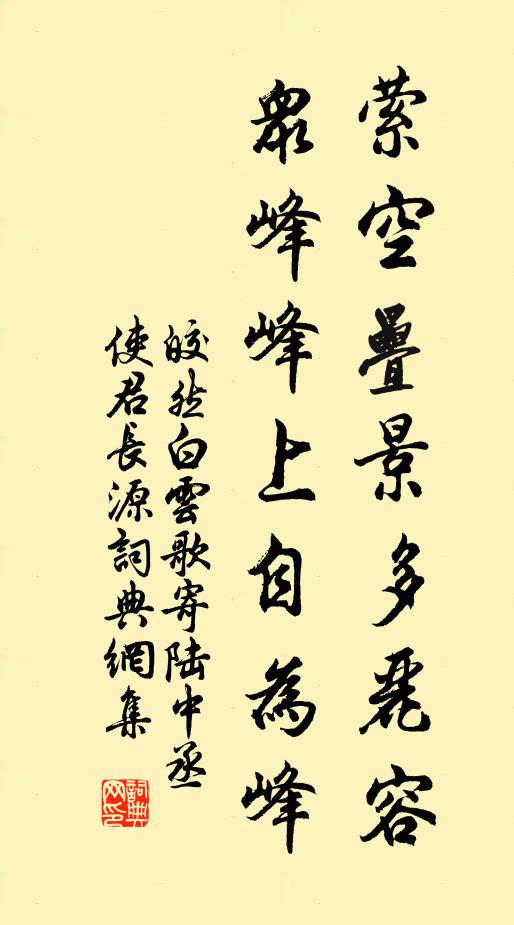 萦空疊景多麗容
眾峰峰上自為峰
皎然白雲歌寄陆中丞
使君長源詞典網集
詞典
网印